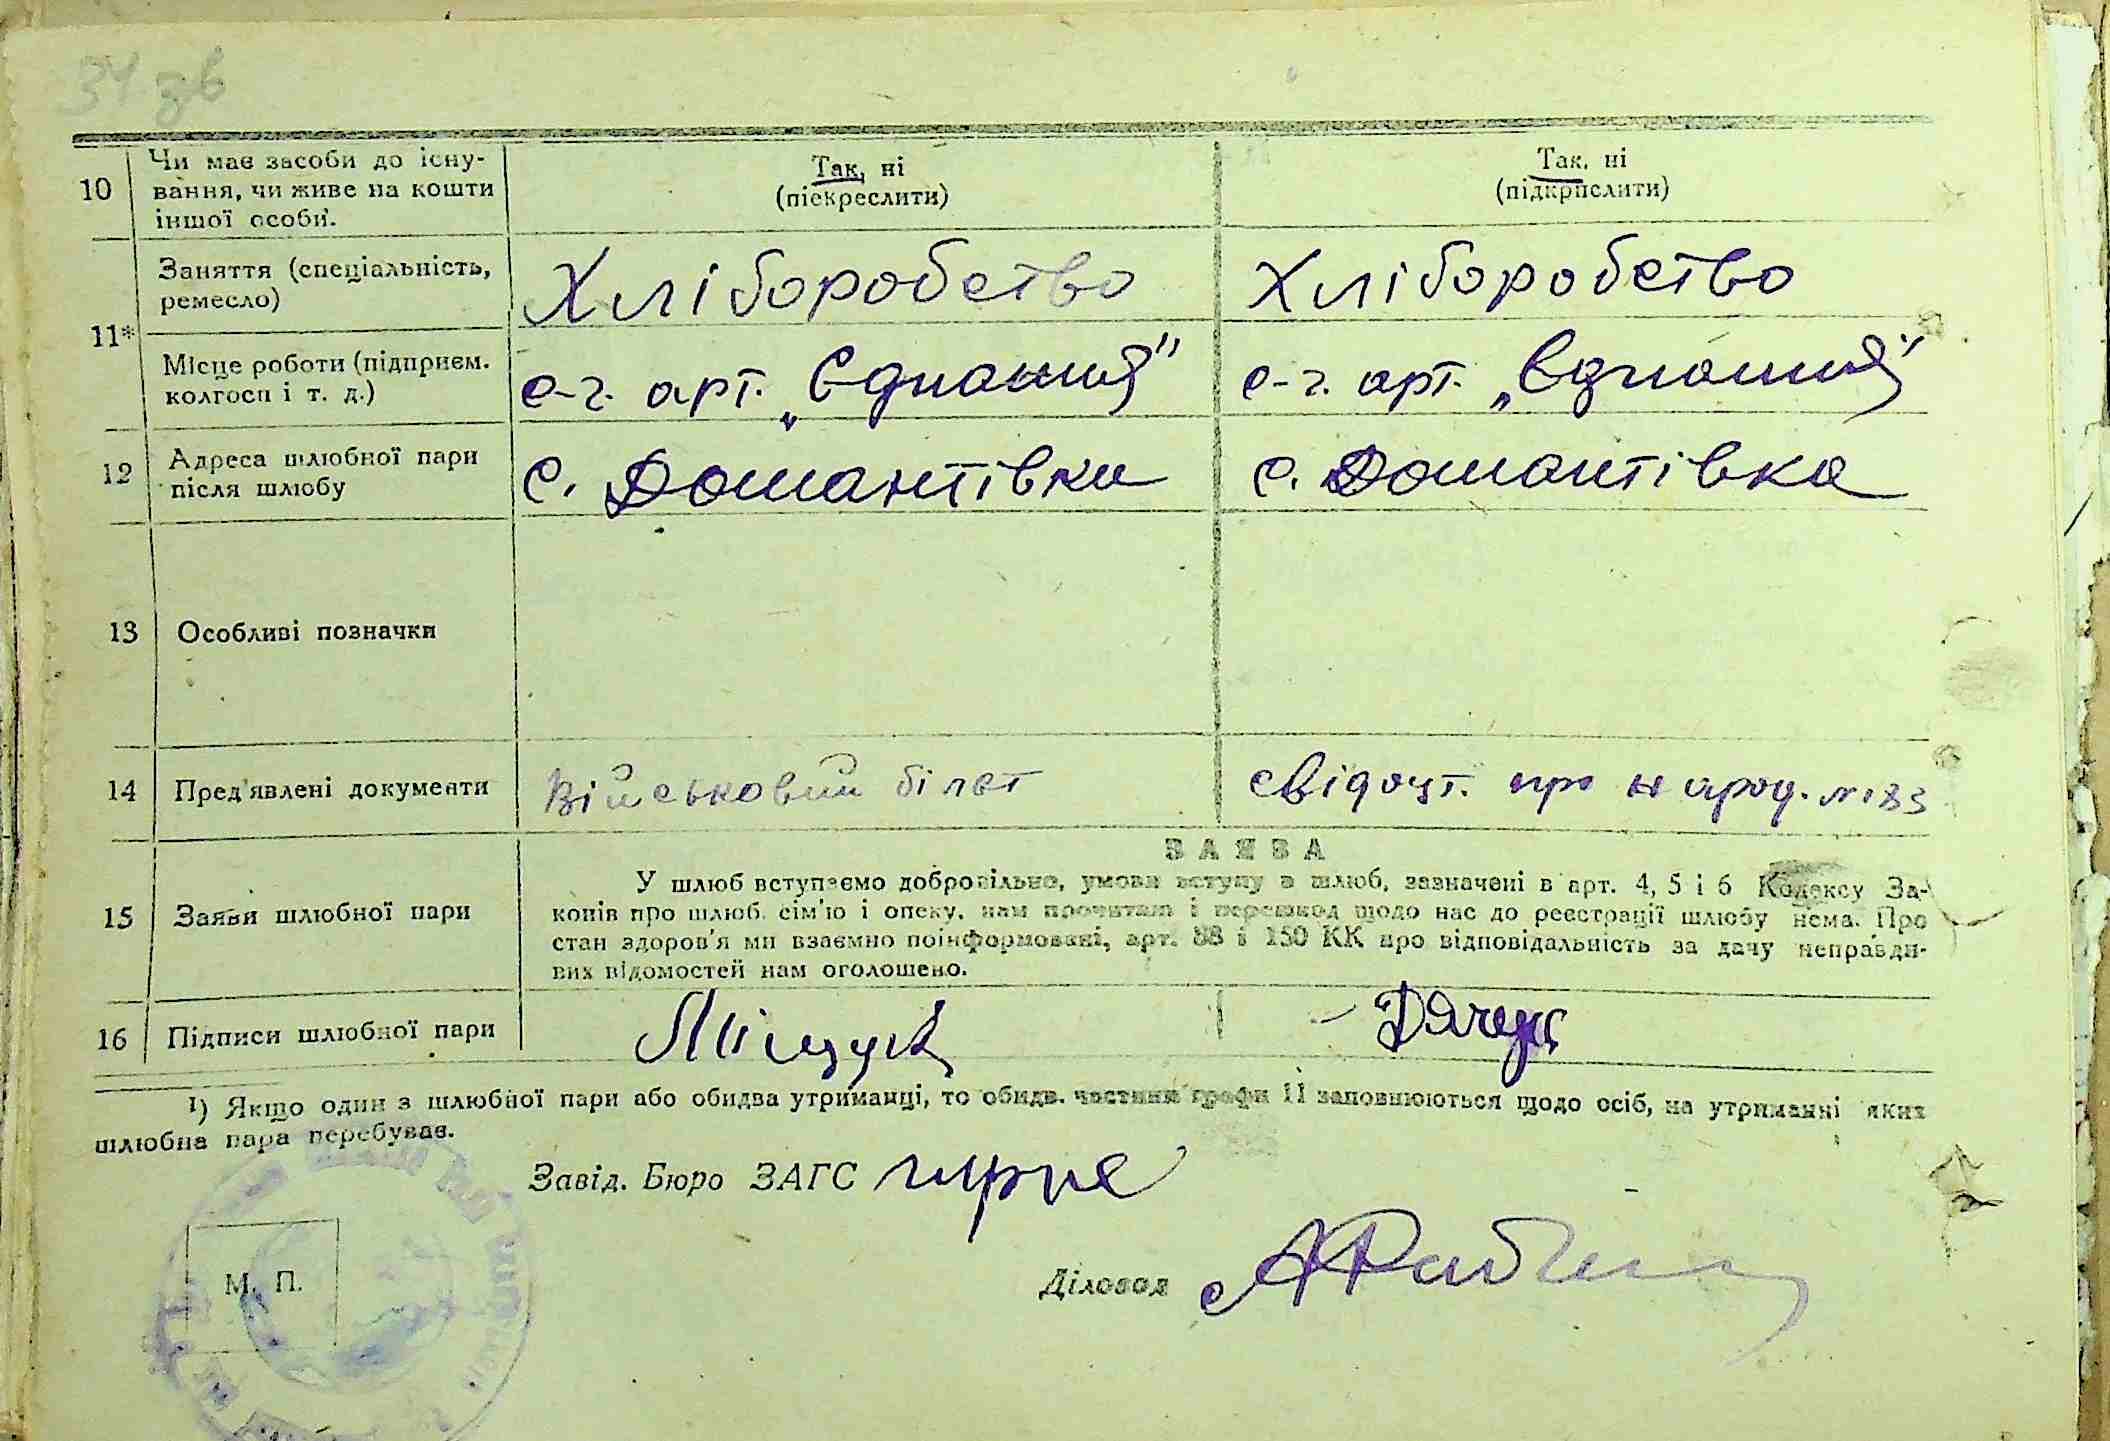 34 зв
10 Чи має засоби до існу-
вання, чи живе на кошти
іншої особи.
Так, ні
(піекреслити)
Так, ні
(підкрислити)
11* Заняття (спеціальність,
ремесло)
Хліборобство
Хліборобство
Місце роботи (підприєм.
колгосп і т. д.)
с-г. арт. „Єднання"
с-г. арт. „Єднання"
12 Адреса шлюбної пари
після шлюбу
с. Домантівка
с. Домантівка
13 Особливі позначки
14 Пред'явлені документи
Військовий білет
свідоцт. про народ. №183
15 Заяви шлюбної пари
ЗАЯВА
У шлюб вступаємо добровільно, умови вступу в шлюб, зазначені в арт. 4, 5 і 6 Кодексу За-
конів про шлюб, сім'ю і опеку, нам прочитані і перешкод щодо нас до реєстрації шлюбу нема. Про
стан здоров'я ми взаємно поінформовані, арт. 88 і 150 КК про відповідальність за дачу неправди-
вих відомостей нам оголошено.
16 Підписи шлюбної пари
Міщук
Дячук
¹) Якщо один з шлюбної пари або обидва утриманці, то обидв. частини графи 11 заповнюються щодо осіб, на утриманні яких
шлюбна пара перебуває.
Завід. Бюро ЗАГС
Діловод
М. П.